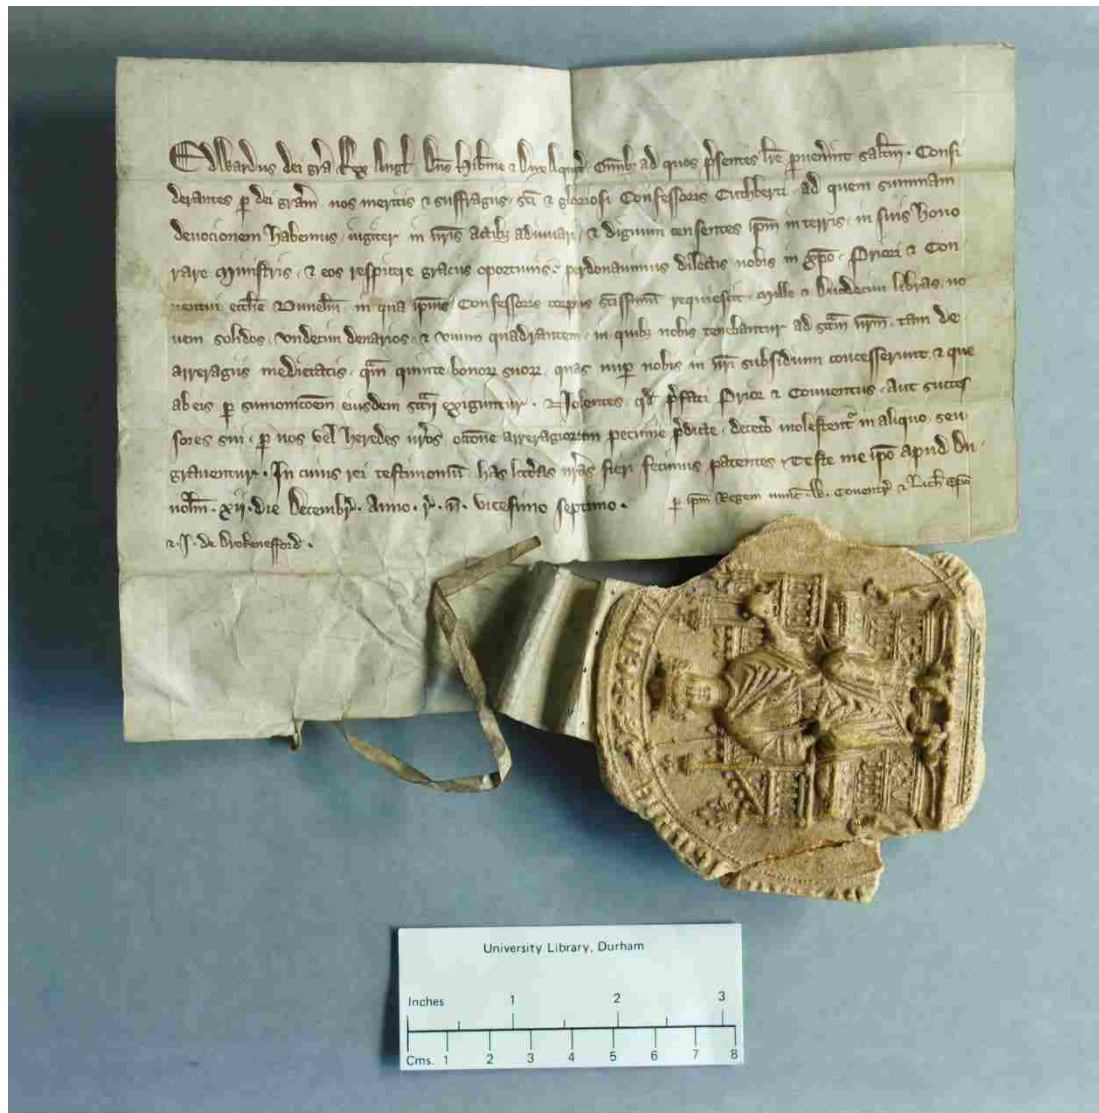 Edwardus dei gra Rex Angl Dns Hibnie & Dux Aquit Omib; ad quos psentes lre puenint saltm. Consi
derantes p dei gram nos meritis & suffragiis sci & gloriosi Confessoris Cuthberti ad quem summam
devocionem habemus iugiter in nris actib; adiuvari & dignum censentes ipm in terris in suis hono
rare ministris & eos respicere graciis oportunis pdonavimus dilectis nobis in xpo Priori & Con
ventui ecclie Dunelm in qua ipius Confessoris corpus scissimu requiescit Mille & Duodecim libras no
vem solidos undecim denarios & unum quadrantem in quib; nobis tenebantur ad sccm nrm tam de
arreragiis medietatis qm quinte bonor suor quas nup nobis in nri subsidium concesserunt & que
ab eis p sumonicoem eiusdem sccii exiguntur. Nolentes qd pfati Prior & Conventus Aut succes
sores sui p nos vel heredes nros occone arreragiorum pecunie pdicte deceto molestentr in aliquo seu
graventur. In cuius rei testimoniu has lras nras fieri fecimus patentes Teste me ipo apud Du
nolm. xij. die Decembr. Anno. r. n. vicesimo septimo.
p ipm Regem nunc W. Coventr & Lich Epo
& J. de Drokenesford.
University Library, Durham
Inches 1 2 3
Cms. 1 2 3 4 5 6 7 8